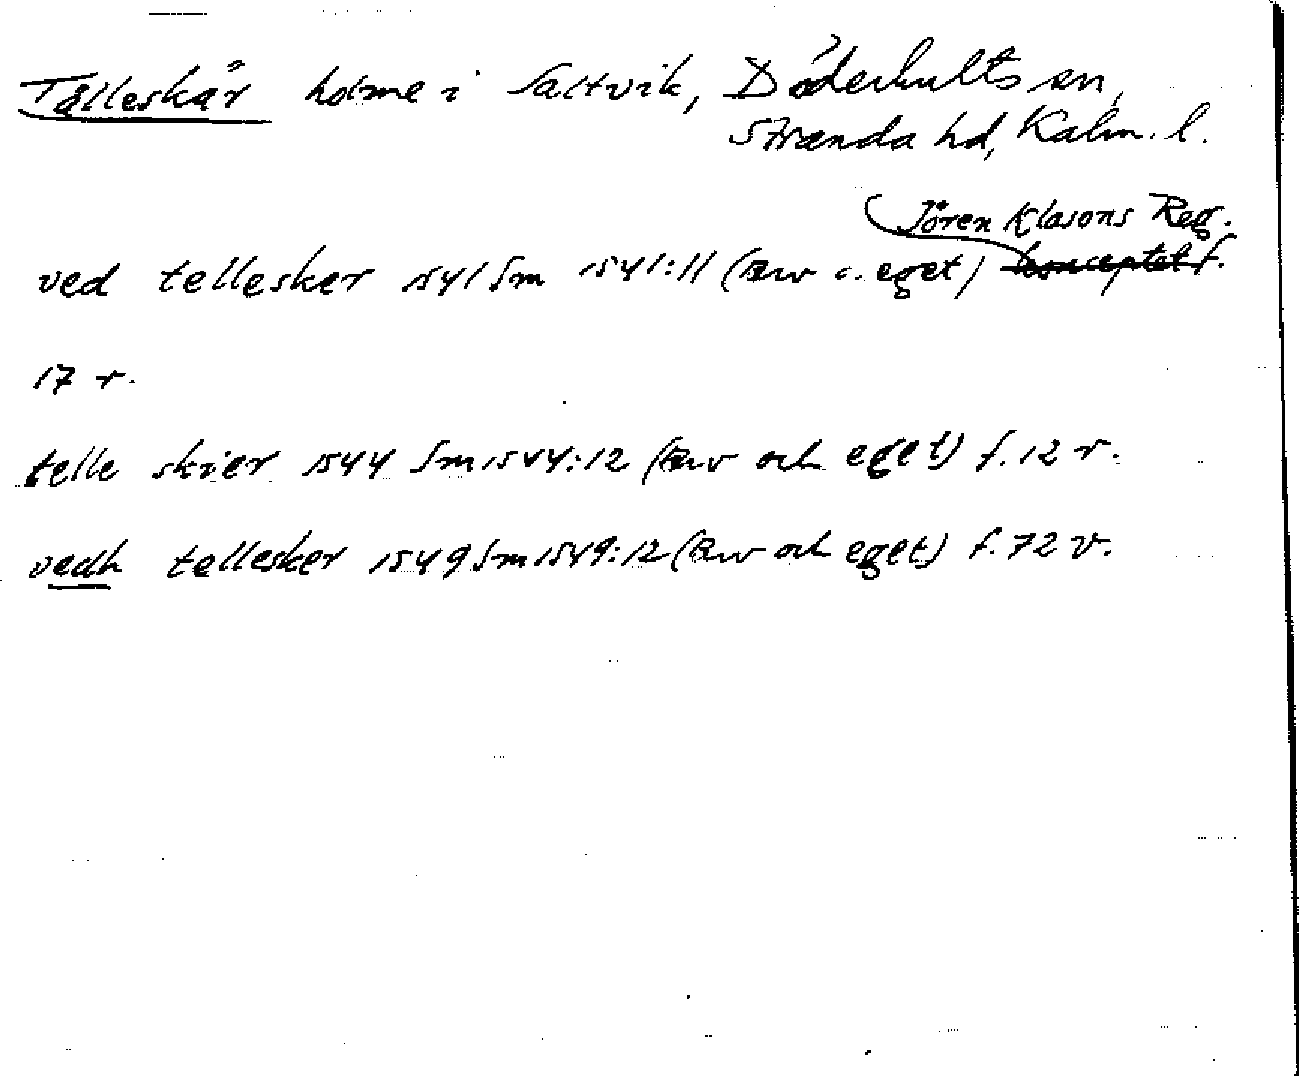 Tälleskär holme i Saltvik, Döderhults sn,
Stranda hd, Kalm. l.
Jören Klasons Reg.
ved tellesker 1541 Sm 1541:11 (Arv o. eget) konceptet f.
17 r.
telle skier 1544 Sm 1544:12 (Arv och eget) f. 12 r.
vedh tellesker 1549 Sm 1549:12 (Arv och eget) f. 72 v.